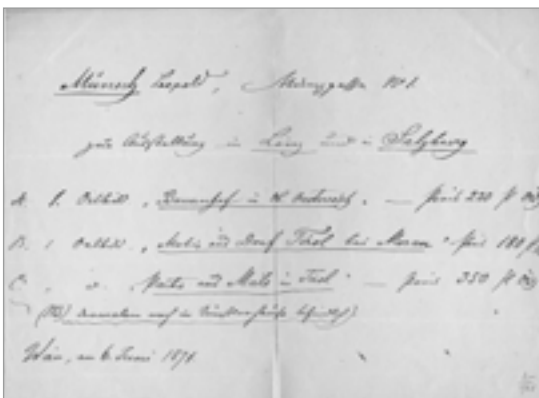 Munsch Leopold, Münzgasse No 1.
zur Ausstellung in Linz und in Salzburg
A. 1. Oelbild „Bauernhof in Ob. Oesterreich" — Preis 220 fl
B. 1 Oelbild „ und Dorf Tirol bei Meran" Preis 180 fl
C. " " und Mals in Tirol" — Preis 350 fl
noch im Künstlerhause befindlich)
Wien, am 6. Juni 1871